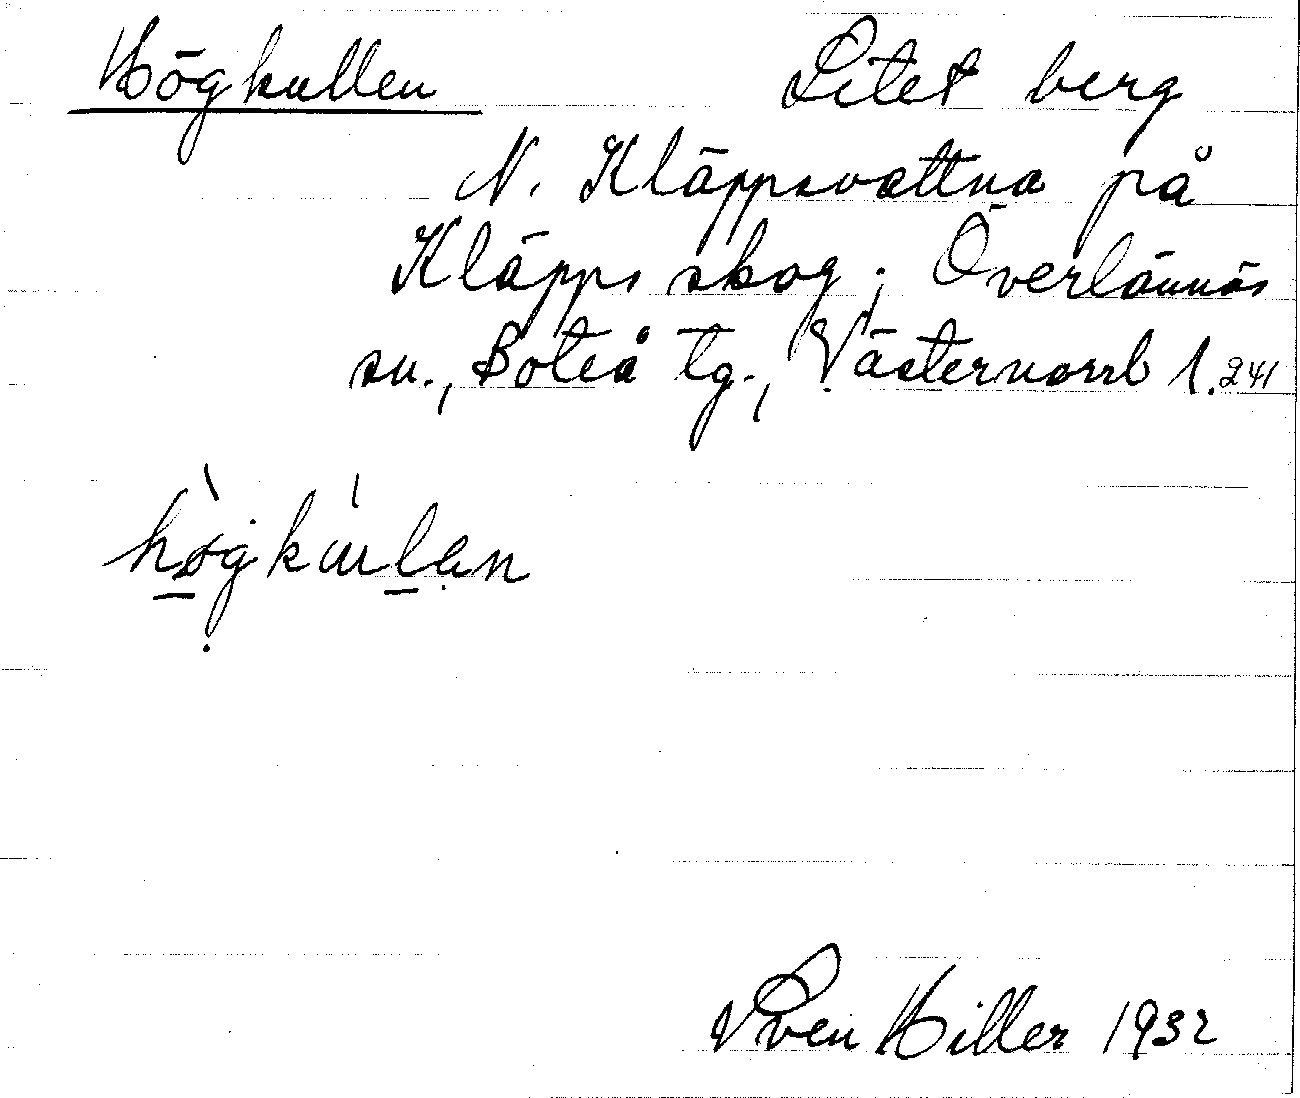 Högkullen Litet berg
N. Kläppsvattna på
Kläpps skog; Överlännäs
sn., Boteå tg., Västernorrl l. 241
Sven Hiller 1932